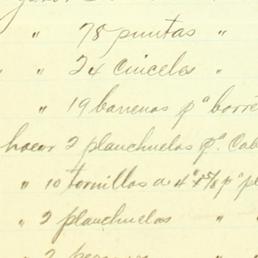 " 78 puntas "
" " 24 cinceles "
" 19 barrenas pª barre
hacer 2 planchuelas pª. Cab
" 10 tornillos de 4"x5/8 pª pl
" 2 planchuelas " "
" 2